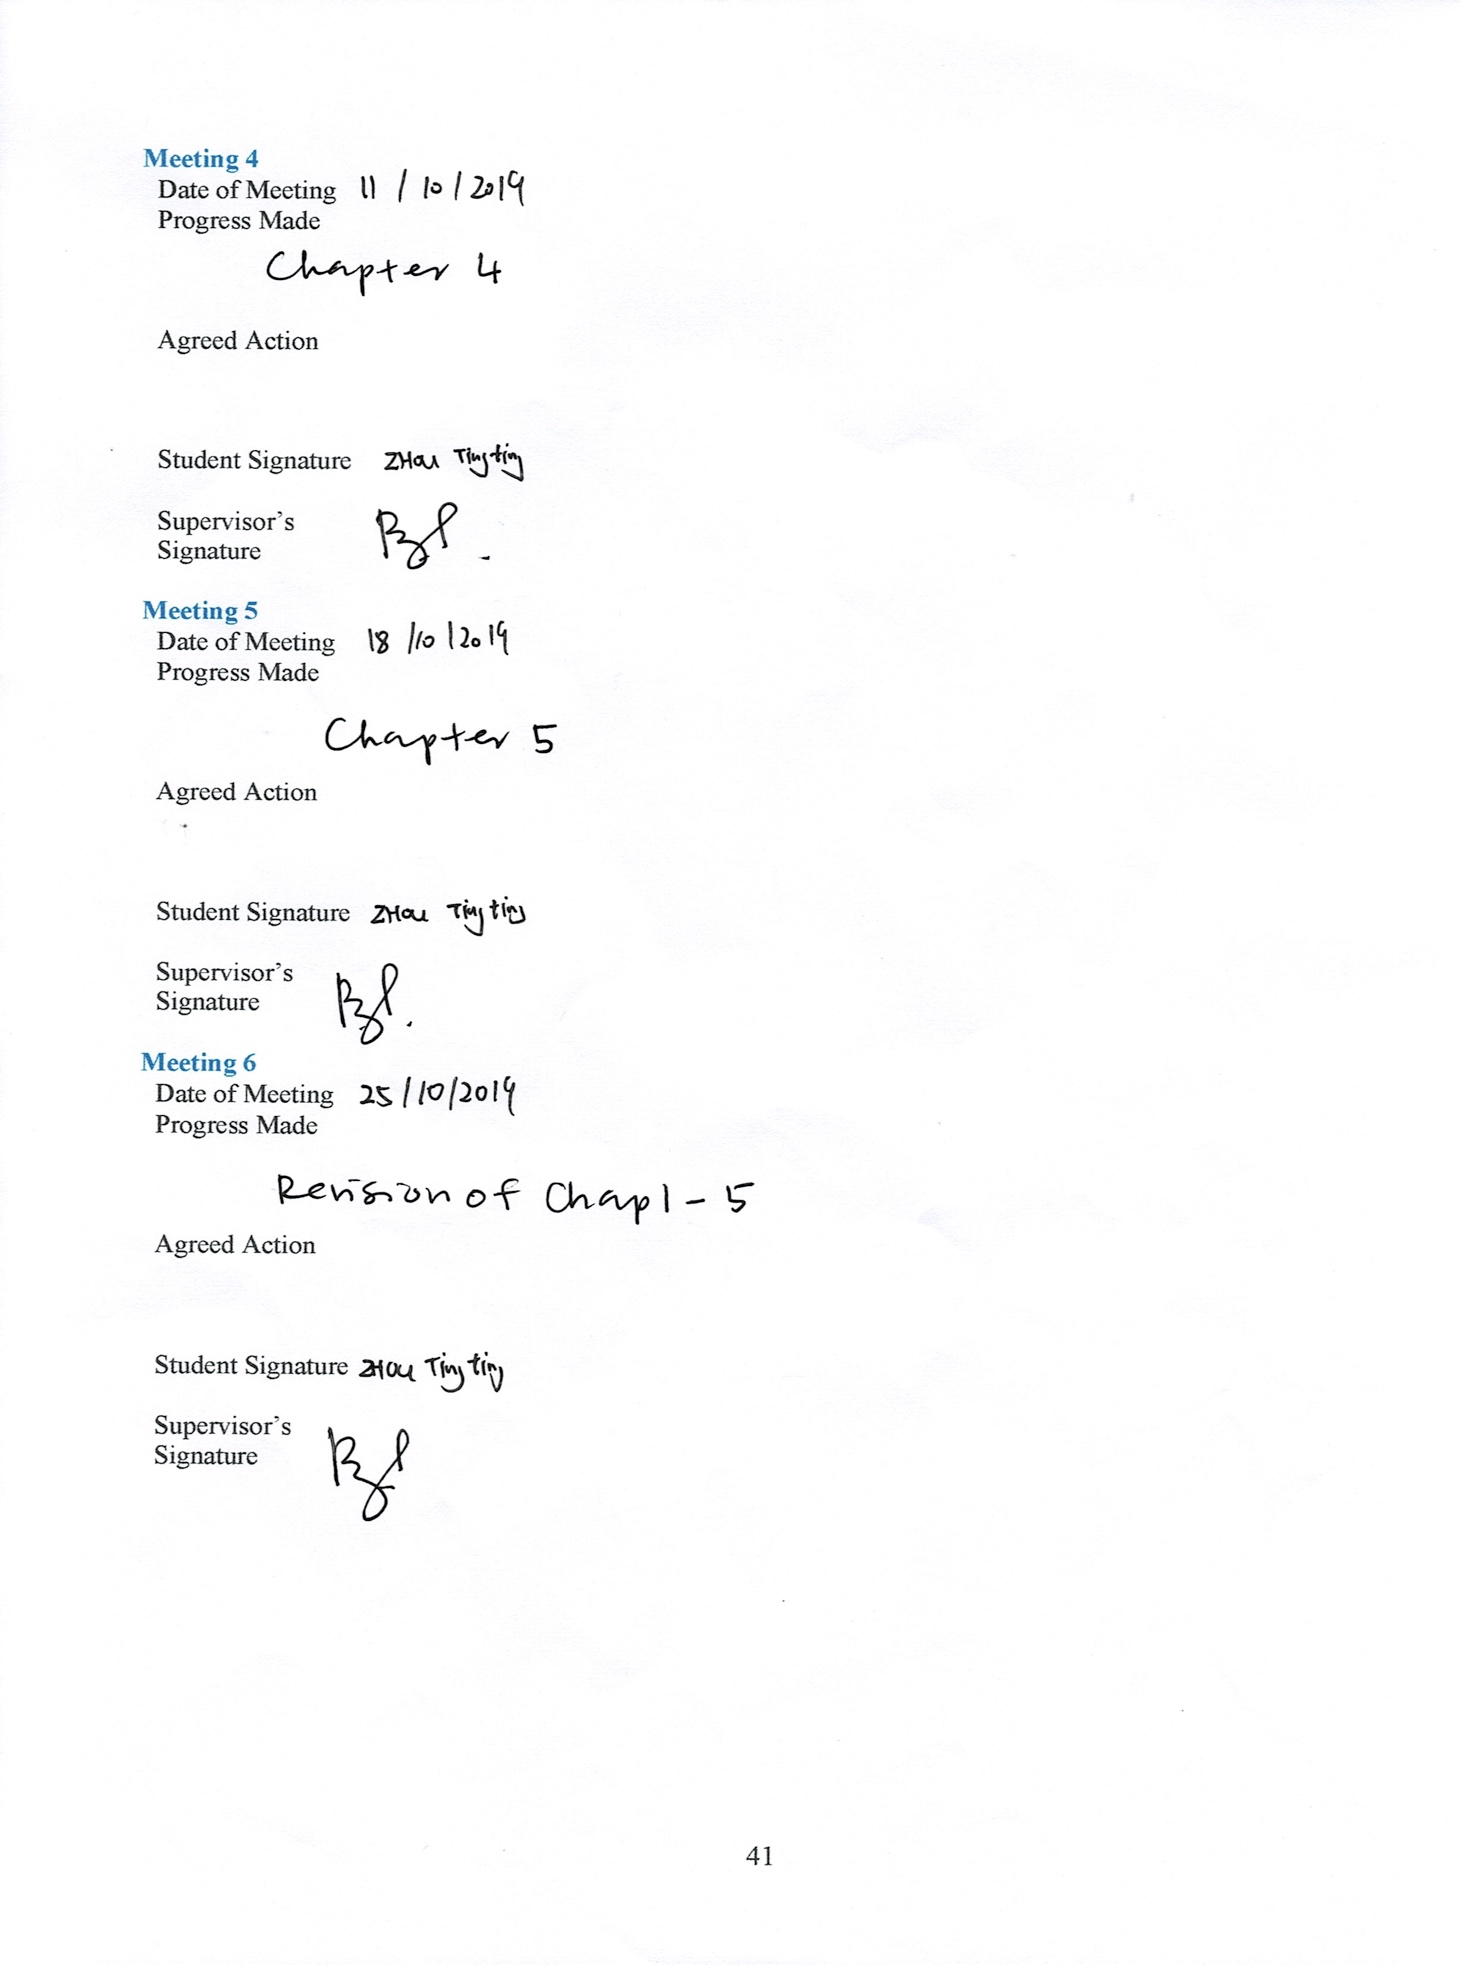 Meeting 4
Date of Meeting 11 / 10 / 2019
Progress Made
Chapter 4
Agreed Action
Student Signature ZHOU Tingting
Supervisor's
Signature
Meeting 5
Date of Meeting 18 /10 / 2019
Progress Made
Chapter 5
Agreed Action
Student Signature ZHOU Tingting
Supervisor's
Signature
Meeting 6
Date of Meeting 25 / 10/2019
Progress Made
Revision of Chap 1 - 5
Agreed Action
Student Signature ZHOU Tingting
Supervisor's
Signature
41